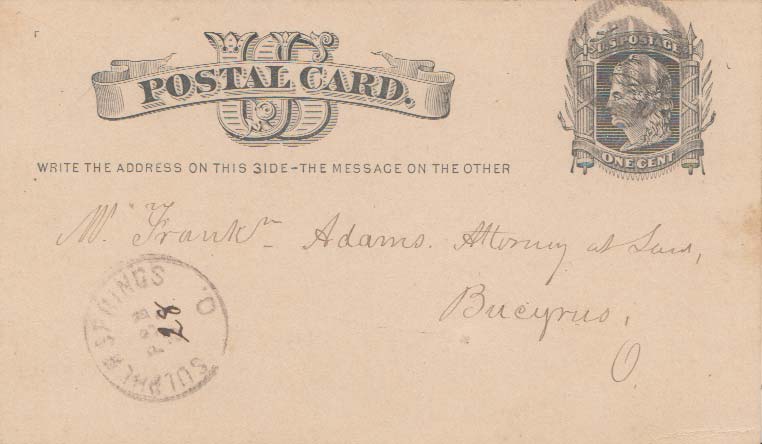 US
POSTAL CARD.
U.S. POSTAGE
ONE CENT
WRITE THE ADDRESS ON THIS SIDE-THE MESSAGE ON THE OTHER
Mr. Frankn Adams. Attorney at Law,
Bucyrus,
O.
SULPHER SPRINGS O.
FEB
28